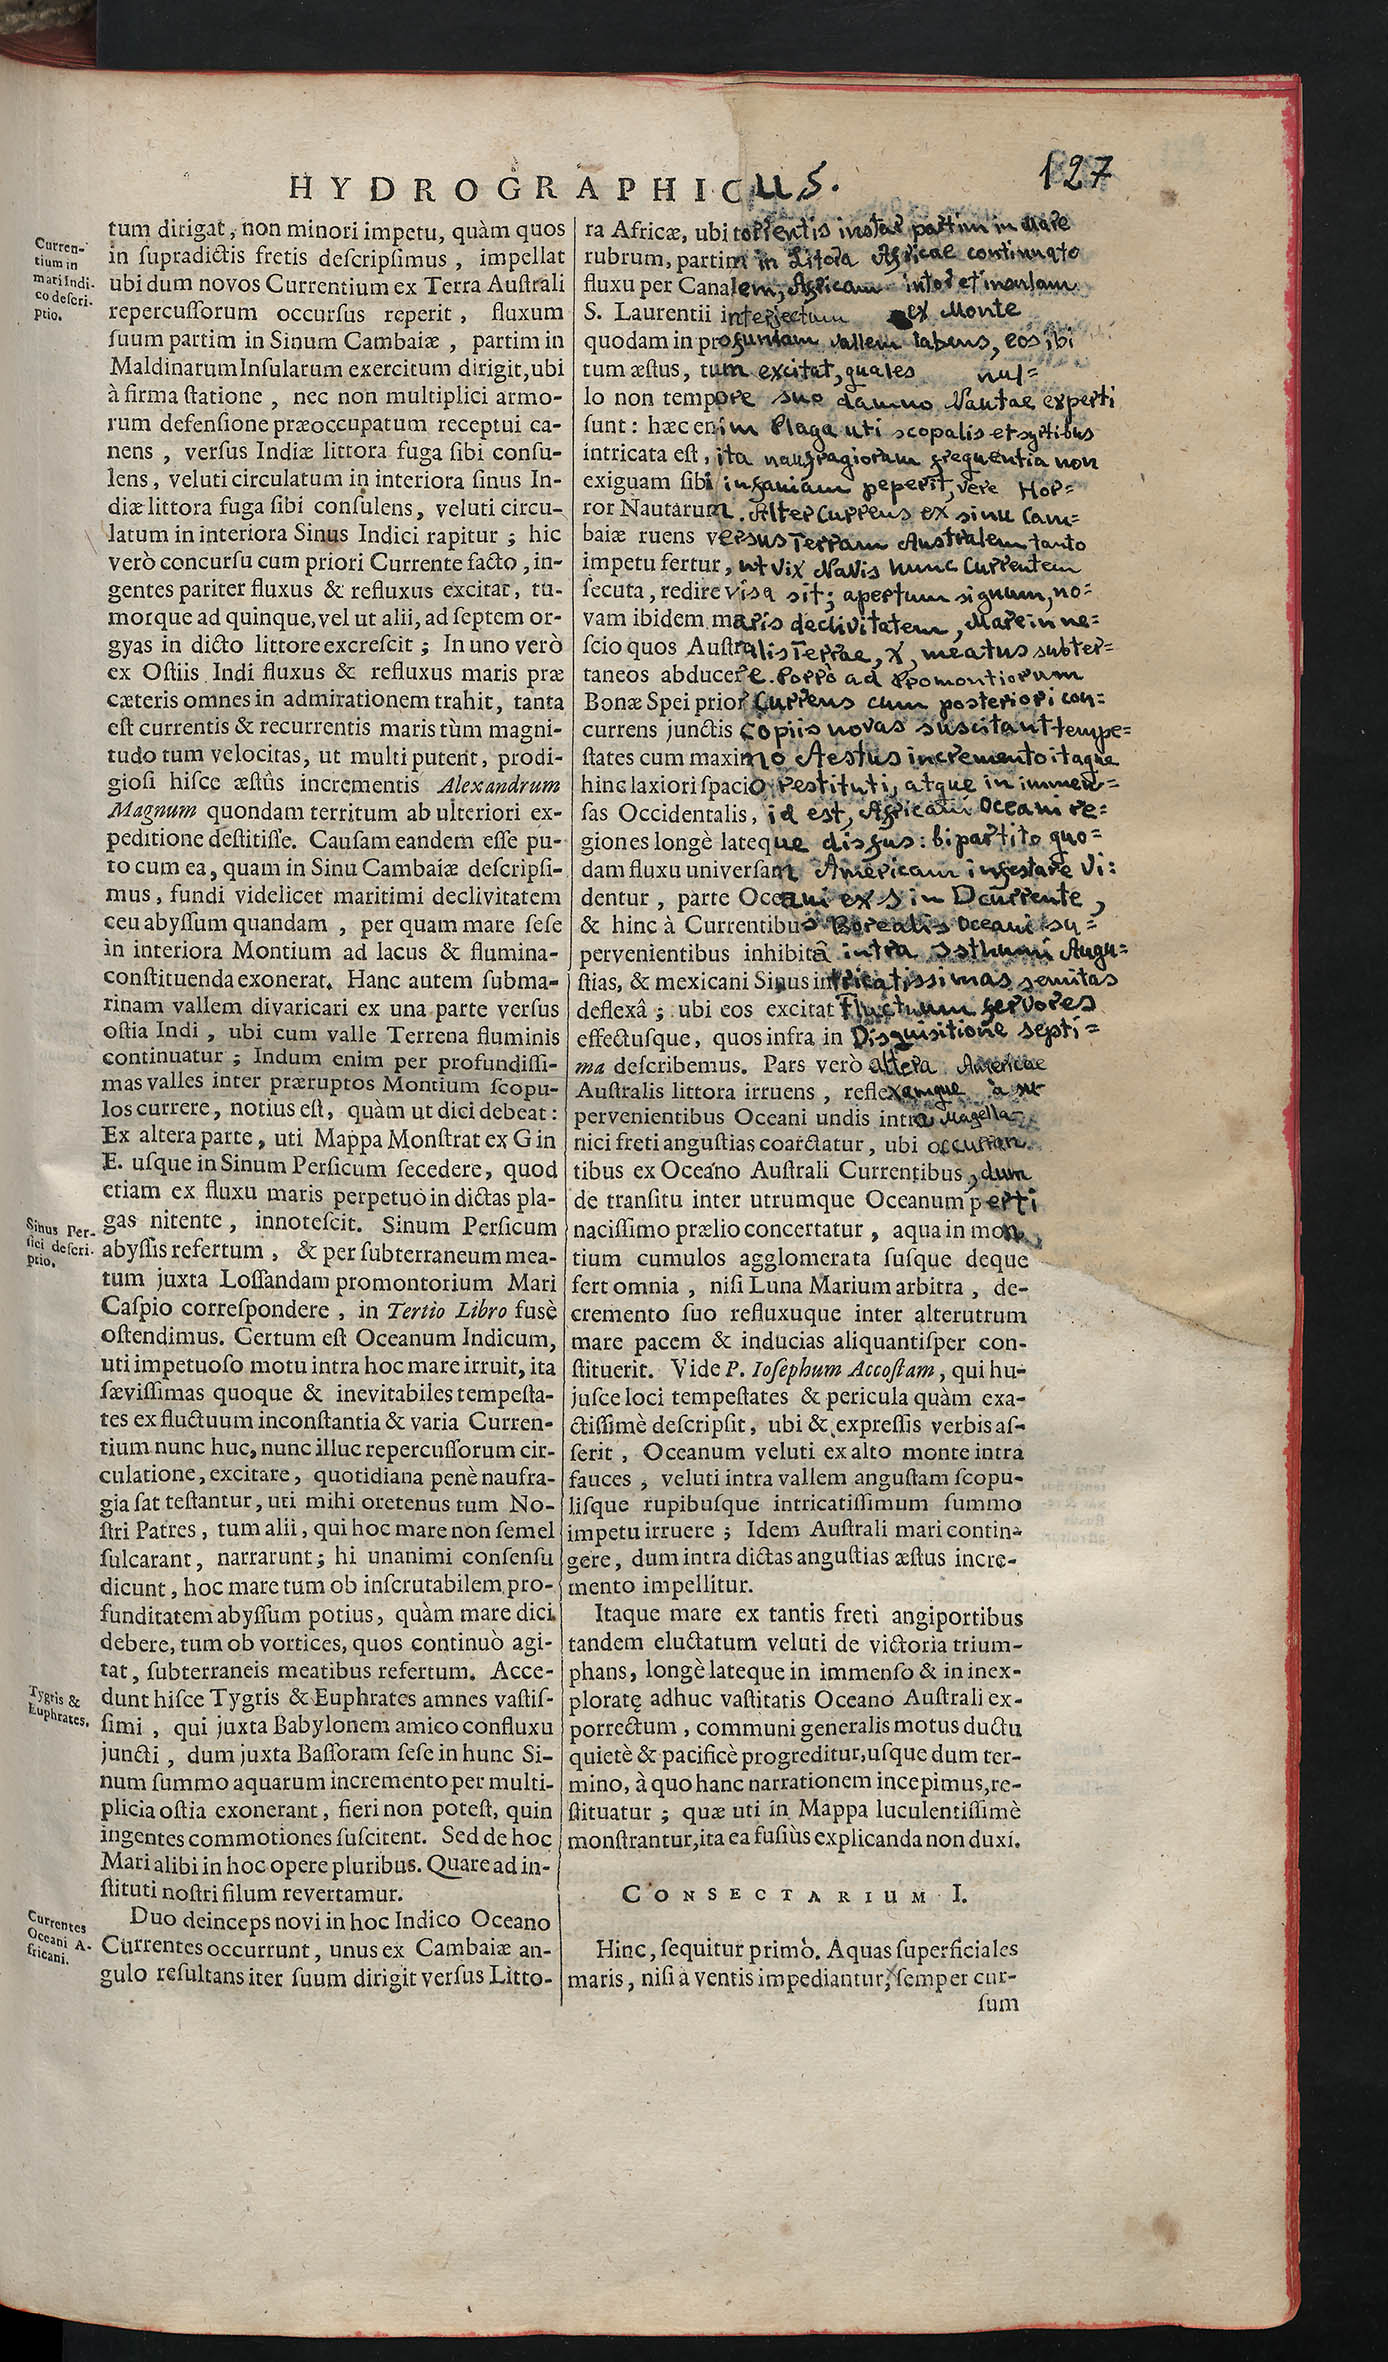 HYDROGRAPHICUS.
127
Curren-
tium in
mari Indi-
co descri-
ptio.
tum dirigat, non minori impetu, quàm quos
in supradictis fretis descripsimus, impellat
ubi dum novos Currentium ex Terra Australi
repercussorum occursus reperit, fluxum
suum partim in Sinum Cambaiæ, partim in
Maldinarum Insularum exercitum dirigit, ubi
à firma statione, nec non multiplici armo-
rum defensione præoccupatum receptui ca-
nens, versus Indiæ littora fuga sibi consu-
lens, veluti circulatum in interiora sinus In-
diæ littora fuga sibi consulens, veluti circu-
latum in interiora Sinus Indici rapitur; hic
verò concursu cum priori Currente facto, in-
gentes pariter fluxus & refluxus excitat, tu-
morque ad quinque, vel ut alii, ad septem or-
gyas in dicto littore excrescit; In uno verò
ex Ostiis Indi fluxus & refluxus maris præ
cæteris omnes in admirationem trahit, tanta
est currentis & recurrentis maris tùm magni-
tudo tum velocitas, ut multi putent, prodi-
giosi hisce æstûs incrementis Alexandrum
Magnum quondam territum ab ulteriori ex-
peditione destitisse. Causam eandem esse pu-
to cum ea, quam in Sinu Cambaiæ descripsi-
mus, fundi videlicet maritimi declivitatem
ceu abyssum quandam, per quam mare sese
in interiora Montium ad lacus & flumina-
constituenda exonerat. Hanc autem subma-
rinam vallem divaricari ex una parte versus
ostia Indi, ubi cum valle Terrena fluminis
continuatur; Indum enim per profundissi-
mas valles inter præruptos Montium scopu-
los currere, notius est, quàm ut dici debeat:
Ex altera parte, uti Mappa Monstrat ex G in
E. usque in Sinum Persicum secedere, quod
etiam ex fluxu maris perpetuò in dictas pla-
gas nitente, innotescit. Sinum Persicum
Sinus Per-
sici descri-
ptio.
abyssis refertum, & per subterraneum mea-
tum juxta Lossandam promontorium Mari
Caspio correspondere, in Tertio Libro fusè
ostendimus. Certum est Oceanum Indicum,
uti impetuoso motu intra hoc mare irruit, ita
sævissimas quoque & inevitabiles tempesta-
tes ex fluctuum inconstantia & varia Curren-
tium nunc huc, nunc illuc repercussorum cir-
culatione, excitare, quotidiana penè naufra-
gia sat testantur, uti mihi oretenus tum No-
stri Patres, tum alii, qui hoc mare non semel
sulcarant, narrarunt; hi unanimi consensu
dicunt, hoc mare tum ob inscrutabilem pro-
funditatem abyssum potius, quàm mare dici
debere, tum ob vortices, quos continuò agi-
tat, subterraneis meatibus refertum. Acce-
Tygris &
Euphrates.
dunt hisce Tygris & Euphrates amnes vastis-
simi, qui juxta Babylonem amico confluxu
juncti, dum juxta Bassoram sese in hunc Si-
num summo aquarum incremento per multi-
plicia ostia exonerant, fieri non potest, quin
ingentes commotiones suscitent. Sed de hoc
Mari alibi in hoc opere pluribus. Quare ad in-
stituti nostri filum revertamur.
Currentes
Oceani A-
fricani.
Duo deinceps novi in hoc Indico Oceano
Currentes occurrunt, unus ex Cambaiæ an-
gulo resultans iter suum dirigit versus Litto-
ra Africæ, ubi torrentis instar partim in Mare
rubrum, partim in Litora Africae continuato
fluxu per Canalem, Africam inter et insulam
S. Laurentii interjectum ex Monte
quodam in profundam vallem labens, eos ibi
tum æstus, tum excitat, quales nul=
lo non tempore suo damno Nautae experti
sunt: hæc enim Plaga uti scopulis et syrtibus
intricata est, ita naufragiorum frequentia non
exiguam sibi infamiam peperit, vere Hor=
ror Nautarum. Alter Currens ex sinu Cam=
baiæ ruens versus Terram Australem tanto
impetu fertur, ut vix Navis hunc Currentem
secuta, redire visa sit; apertum signum, no=
vam ibidem maris declivitatem, Mare in ne=
scio quos Australis Terrae, X, meatus subter=
taneos abducere. Porrò ad Promontiorium
Bonæ Spei prior Currens cum posteriori con=
currens junctis copiis novas suscitant tempe=
states cum maximo Aestus incremento itaque
hinc laxiori spacio restituti, atque in immen=
sas Occidentalis, id est, Africani Oceani re=
giones longè lateque disfus: bipartito quo=
dam fluxu universam Americam infestare vi:
dentur, parte Oceani ex S in D currente,
& hinc à Currentibus Borealis Oceani su=
pervenientibus inhibitâ intra Isthumi Angu=
stias, & mexicani Sinus intricatissimas semitas
deflexâ; ubi eos excitat Fluctuum fervores
effectusque, quos infra in Disquisitione septi=
ma describemus. Pars verò altera Americae
Australis littora irruens, reflexamque à su
pervenientibus Oceani undis intra Magella=
nici freti angustias coarctatur, ubi occurran
tibus ex Oceano Australi Currentibus, dum
de transitu inter utrumque Oceanum perti
nacissimo prælio concertatur, aqua in mon
tium cumulos agglomerata susque deque
fert omnia, nisi Luna Marium arbitra, de-
cremento suo refluxuque inter alterutrum
mare pacem & inducias aliquantisper con-
stituerit. Vide P. Iosephum Accostam, qui hu-
jusce loci tempestates & pericula quàm exa-
ctissimè descripsit, ubi & expressis verbis as-
serit, Oceanum veluti ex alto monte intra
fauces, veluti intra vallem angustam scopu-
lisque rupibusque intricatissimum summo
impetu irruere; Idem Australi mari contin-
gere, dum intra dictas angustias æstus incre-
mento impellitur.
Itaque mare ex tantis freti angiportibus
tandem eluctatum veluti de victoria trium-
phans, longè lateque in immenso & in inex-
ploratę adhuc vastitatis Oceano Australi ex-
porrectum, communi generalis motus ductu
quietè & pacificè progreditur, usque dum ter-
mino, à quo hanc narrationem incepimus, re-
stituatur; quæ uti in Mappa luculentissimè
monstrantur, ita ea fusiùs explicanda non duxi.
CONSECTARIUM I.
Hinc, sequitur primò. Aquas superficiales
maris, nisi à ventis impediantur, semper cur-
sum